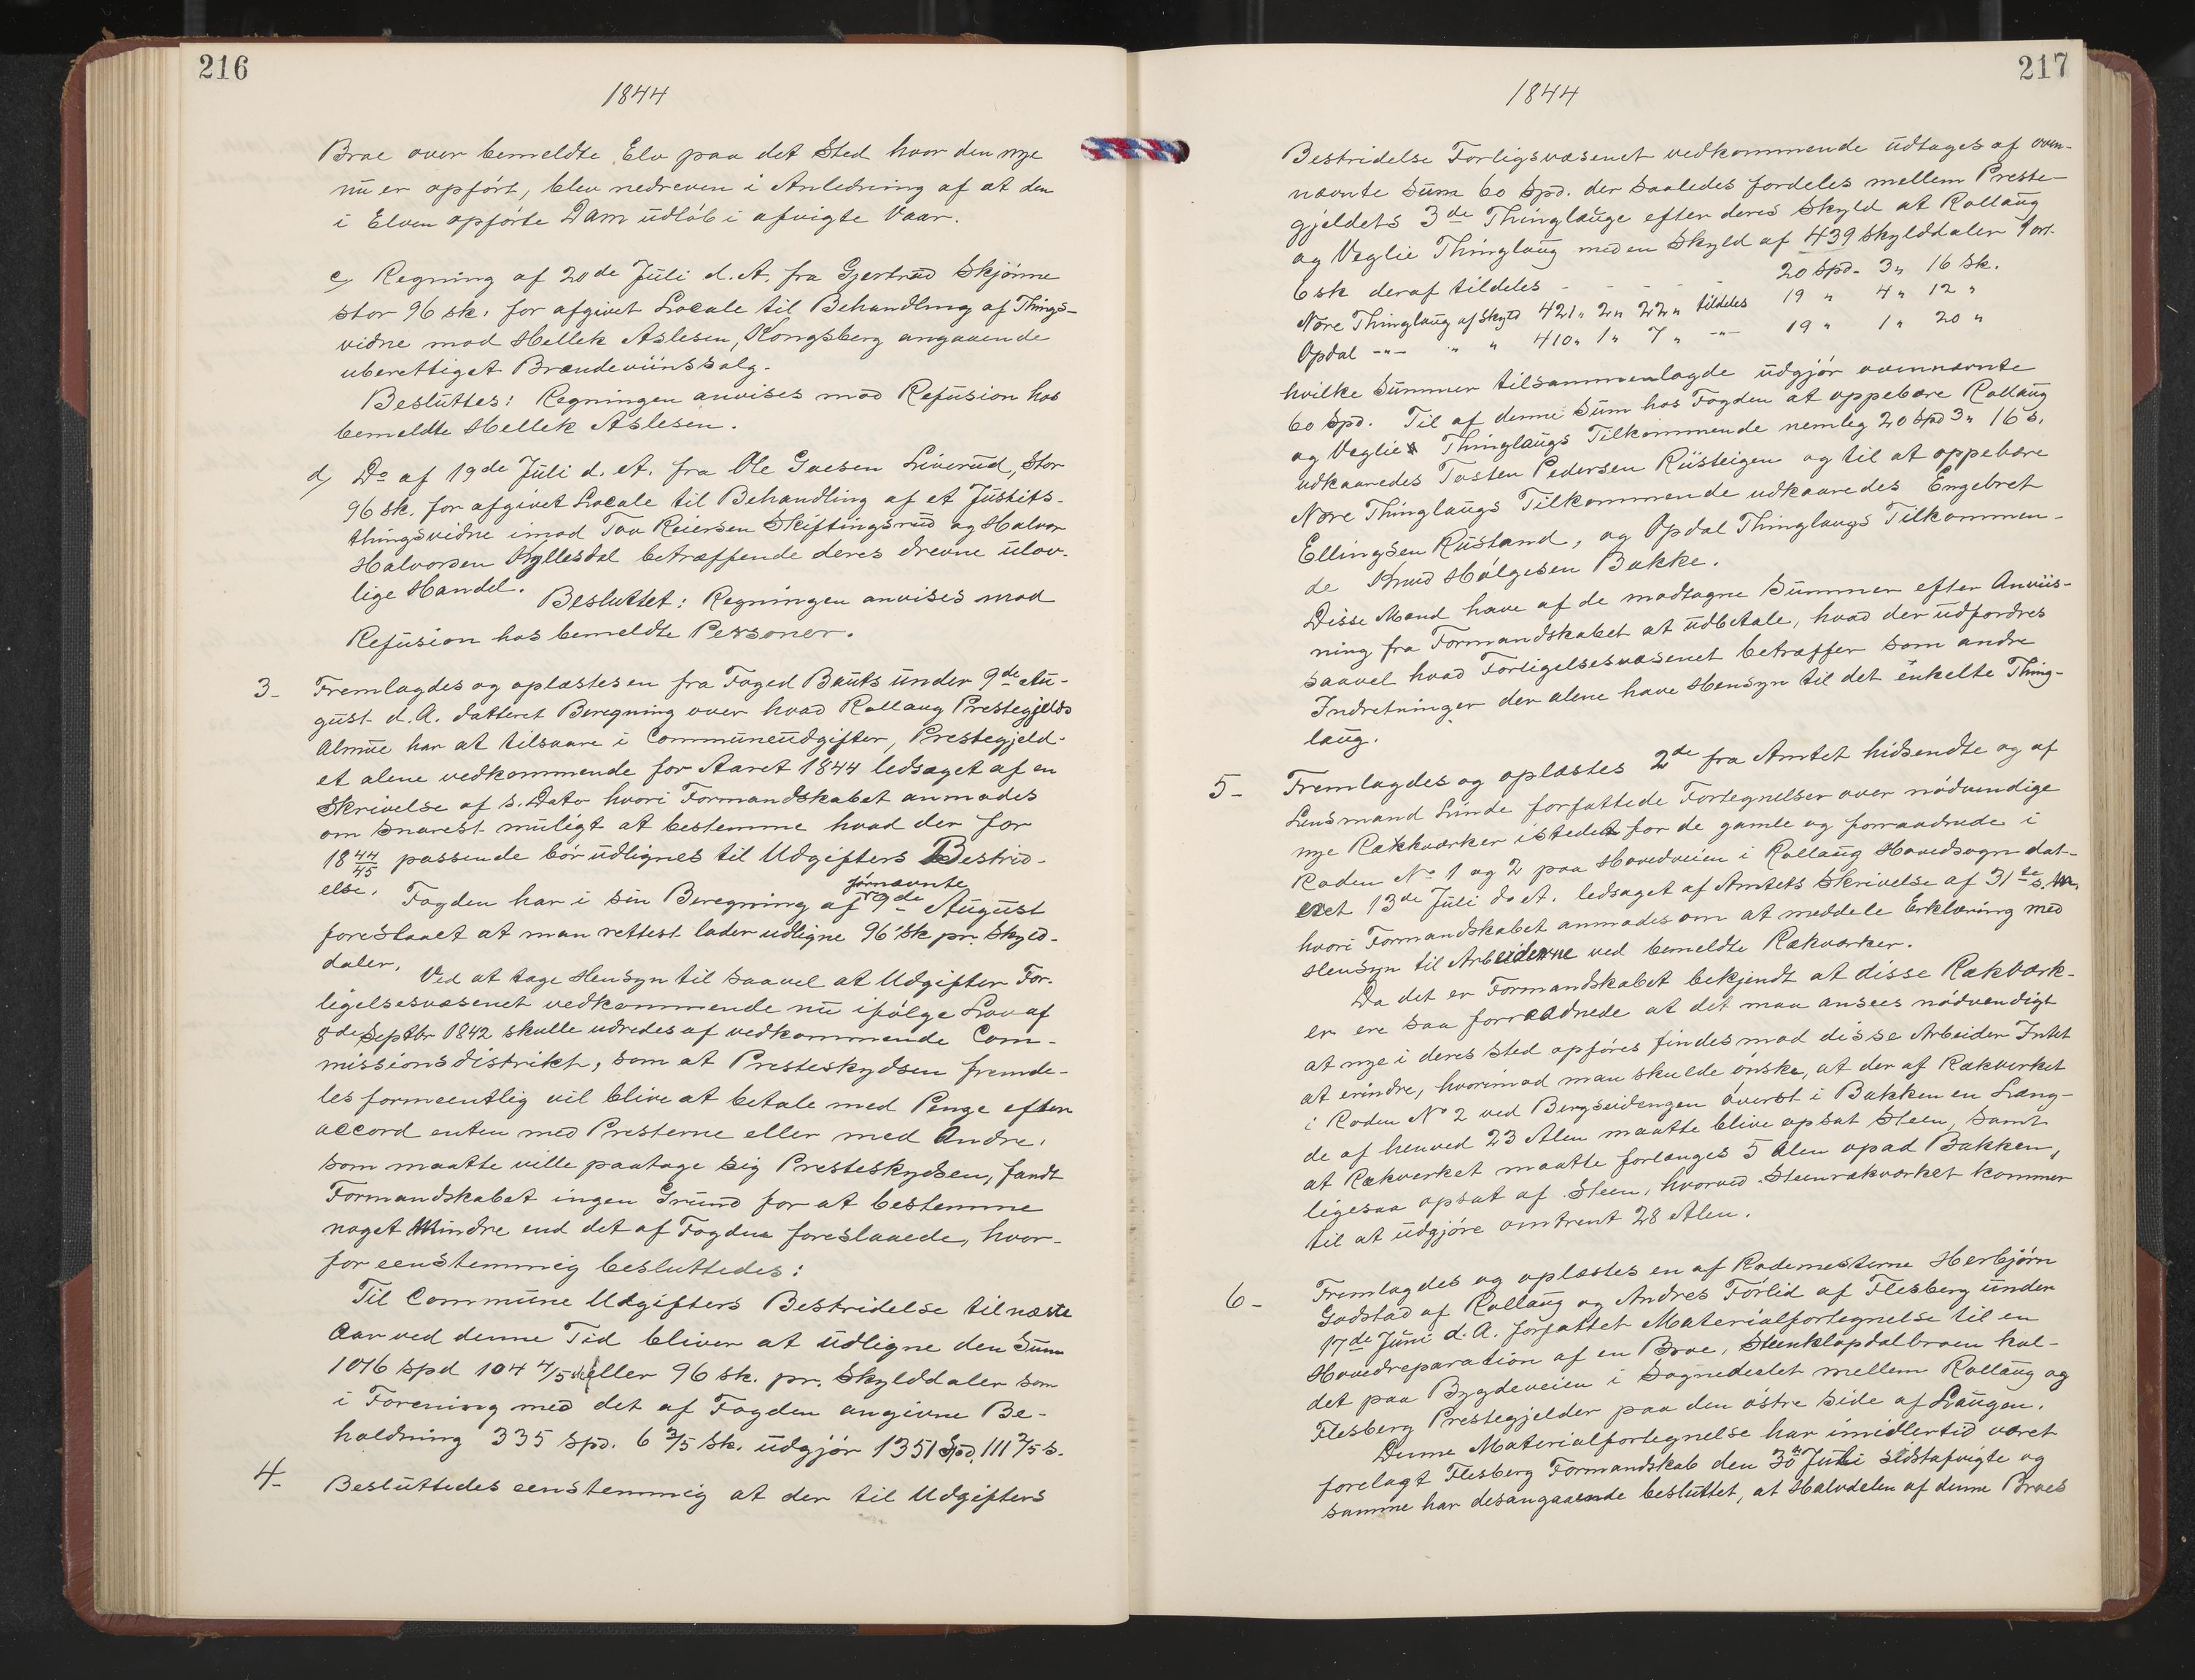 216
1844
Broe over bemeldte Elv paa det Sted hvor den nye
nu er opført, blev nedreven i Anledning af at den
i Elven opførte Dam udløb i afvigte Vaar.
c) Regning af 20de Juli d. A. fra Gjertrud Skjönne
stor 96 sk. for afgivet Locale til Behandling af Things-
vidne mod Hellek Aslesen, Kongsberg angaaende
uberettiget Brændeviinssalg.
Besluttes: Regningen anvises mod Refusion hos
bemeldte Hellek Aslesen.
d) Do af 19de Juli d. A. fra Ole Goesen Liverud, Stor
96 sk. for afgivet Locale til Behandling af et Justits-
thingsvidne imod Tov Reiersen Skiftingsrud og Halvor
Halvorsen Hyllesdal betræffende deres drevne ulov-
lige Handel.
Besluttet: Regningen anvises mod
Refusion hos bemeldte Personer.
3- Fremlagdes og oplæstes en fra Foged Bauts under 9de Au-
gust d. A. datteret Beregning over hvad Rollaug Prestegjelds
Almue har at tilsvare i Communeudgifter, Prestegjeld-
et alene vedkommende for Aaret 1844 ledsaget af en
Skrivelse af s. Dato hvori Formandskabet anmodes
om snarest muligt at bestemme hvad der for
18 44/45 passende bør udlignes til Udgifters Bestrid-
else.
Fogden har i sin Beregning af førnævnte 9de August
foreslaaet at man rettest lader udligne 96 sk pr. Skyld-
daler.
Ved at tage Hensyn til saavel at Udgifter For-
ligelsesvæsenet vedkommende nu ifølge Lov af
8de Septbr 1842 skulle udredes af vedkommende Com-
missionsdistrikt, som at Presteskydsen fremde-
les formeentlig vil blive at betale med Penge efter
accord enten med Presterne eller med Andre,
som maatte ville paatage sig Presteskydsen, fandt
Formandskabet ingen Grund for at bestemme
noget Mindre end det af Fogden foreslaaede, hvor-
for eenstemmig besluttedes:
Til Commune Udgifters Bestridelse til næste
Aar ved denne Tid bliver at udligne den Sum
1016 Spd 104 4/5 sk eller 96 sk. pr. Skylddaler som
i Forening med det af Fogden angivne Be-
holdning 335 Spd. 6 3/5 sk. udgjør 1351 Spd. 111 2/5 s.
4- Besluttedes eenstemmig at der til Udgifters
217
1844
Bestridelse Forligsvæsenet vedkommende udtages af oven-
nævnte Sum 60 Spd. der saaledes fordeles mellem Preste-
gjeldets 3de Thinglauge efter deres Skyld at Rollaug
og Veglie Thinglaug med en Skyld af 439 skylddaler 1 ort.
6 sk deraf tildeles - - - - - 20 Spd. 3 " 16 sk.
Nore Thinglaug af Skyld 421 " 2 " 22 " tildeles 19 " 4 " 12 "
Opdal -"- " " 410 " 1 " 7 " -"- 19 " 1 " 20 "
hvilke Summer tilsammenlagde udgjør ovennævnte
60 Spd. Til af denne Sum hos Fogden at oppebære Rollaug
og Veglies Thinglaugs Tilkommende nemleg 20 Spd 3 " 16 s.
udkaaredes Tosten Pedersen Rusteigen og til at oppebære
Nore Thinglaugs Tilkommende udkaaredes Engebret
Ellingsen Rustand, og Opdal Thinglaugs Tilkommen-
de Knud Hølgesen Bakke.
Disse Mænd have af de modtagne Summer efter Anviis-
ning fra Formandskabet at udbetale, hvad der udfordres
saavel hvad Forligelsesvæsenet betræffer som andre
Indretninger der alene have Hensyn til det enkelte Thing-
laug.
5- Fremlagdes og oplæstes 2de fra Amtet hidsendte og af
Lensmand Linde forfattede Fortegnelser over nødvendige
nye Rækkværker istedet for de gamle og forraadnede i
Roden No 1 og 2 paa Hovedveien i Rollaug Hovedsogn dat-
eret 13de Juli d. A. ledsaget af Amtets Skrivelse af 31te s. M.
hvori Formandskabet anmodes om at meddele Erklæring med
Hensyn til Arbeiderne ved bemeldte Rækværker.
Da det er Formandskabet bekjendt at disse Rækværk-
er ere saa forraadnede at det maa ansees nødvendigt
at nye i deres Sted opføres findes mod disse Arbeider Intet
at erindre, hvorimod man skulde ønske, at der af Rækverket
i Roden No 2 ved Bergseidengen øverst i Bakken en Læng-
de af henved 23 Alen maatte blive opsat Steen, samt
at Rækverket maatte forlænges 5 Alen opad Bakken,
ligesaa opsat af Steen, hvorved Steenrækværket kommer
til at udgjøre omtrent 28 Alen.
6- Fremlagdes og oplæstes en af Rodemesterne Herbjørn
Godstad af Rollaug og Andres Førlid af Flesberg under
17de Juni d. A. forfattet Materialfortegnelse til en
Hovedreparation af en Broe, Steenklopdalbroen kal-
det paa Bygdeveien i Sognedeelet mellem Rollaug og
Flesberg Prestegjelder paa den østre Side af Laugen.
Denne Materialfortegnelse har imidlertid været
forelagt Flesberg Formandskab den 30te Juli sidstafvigte og
samme har desangaaende besluttet, at Halvdelen af denne Broes